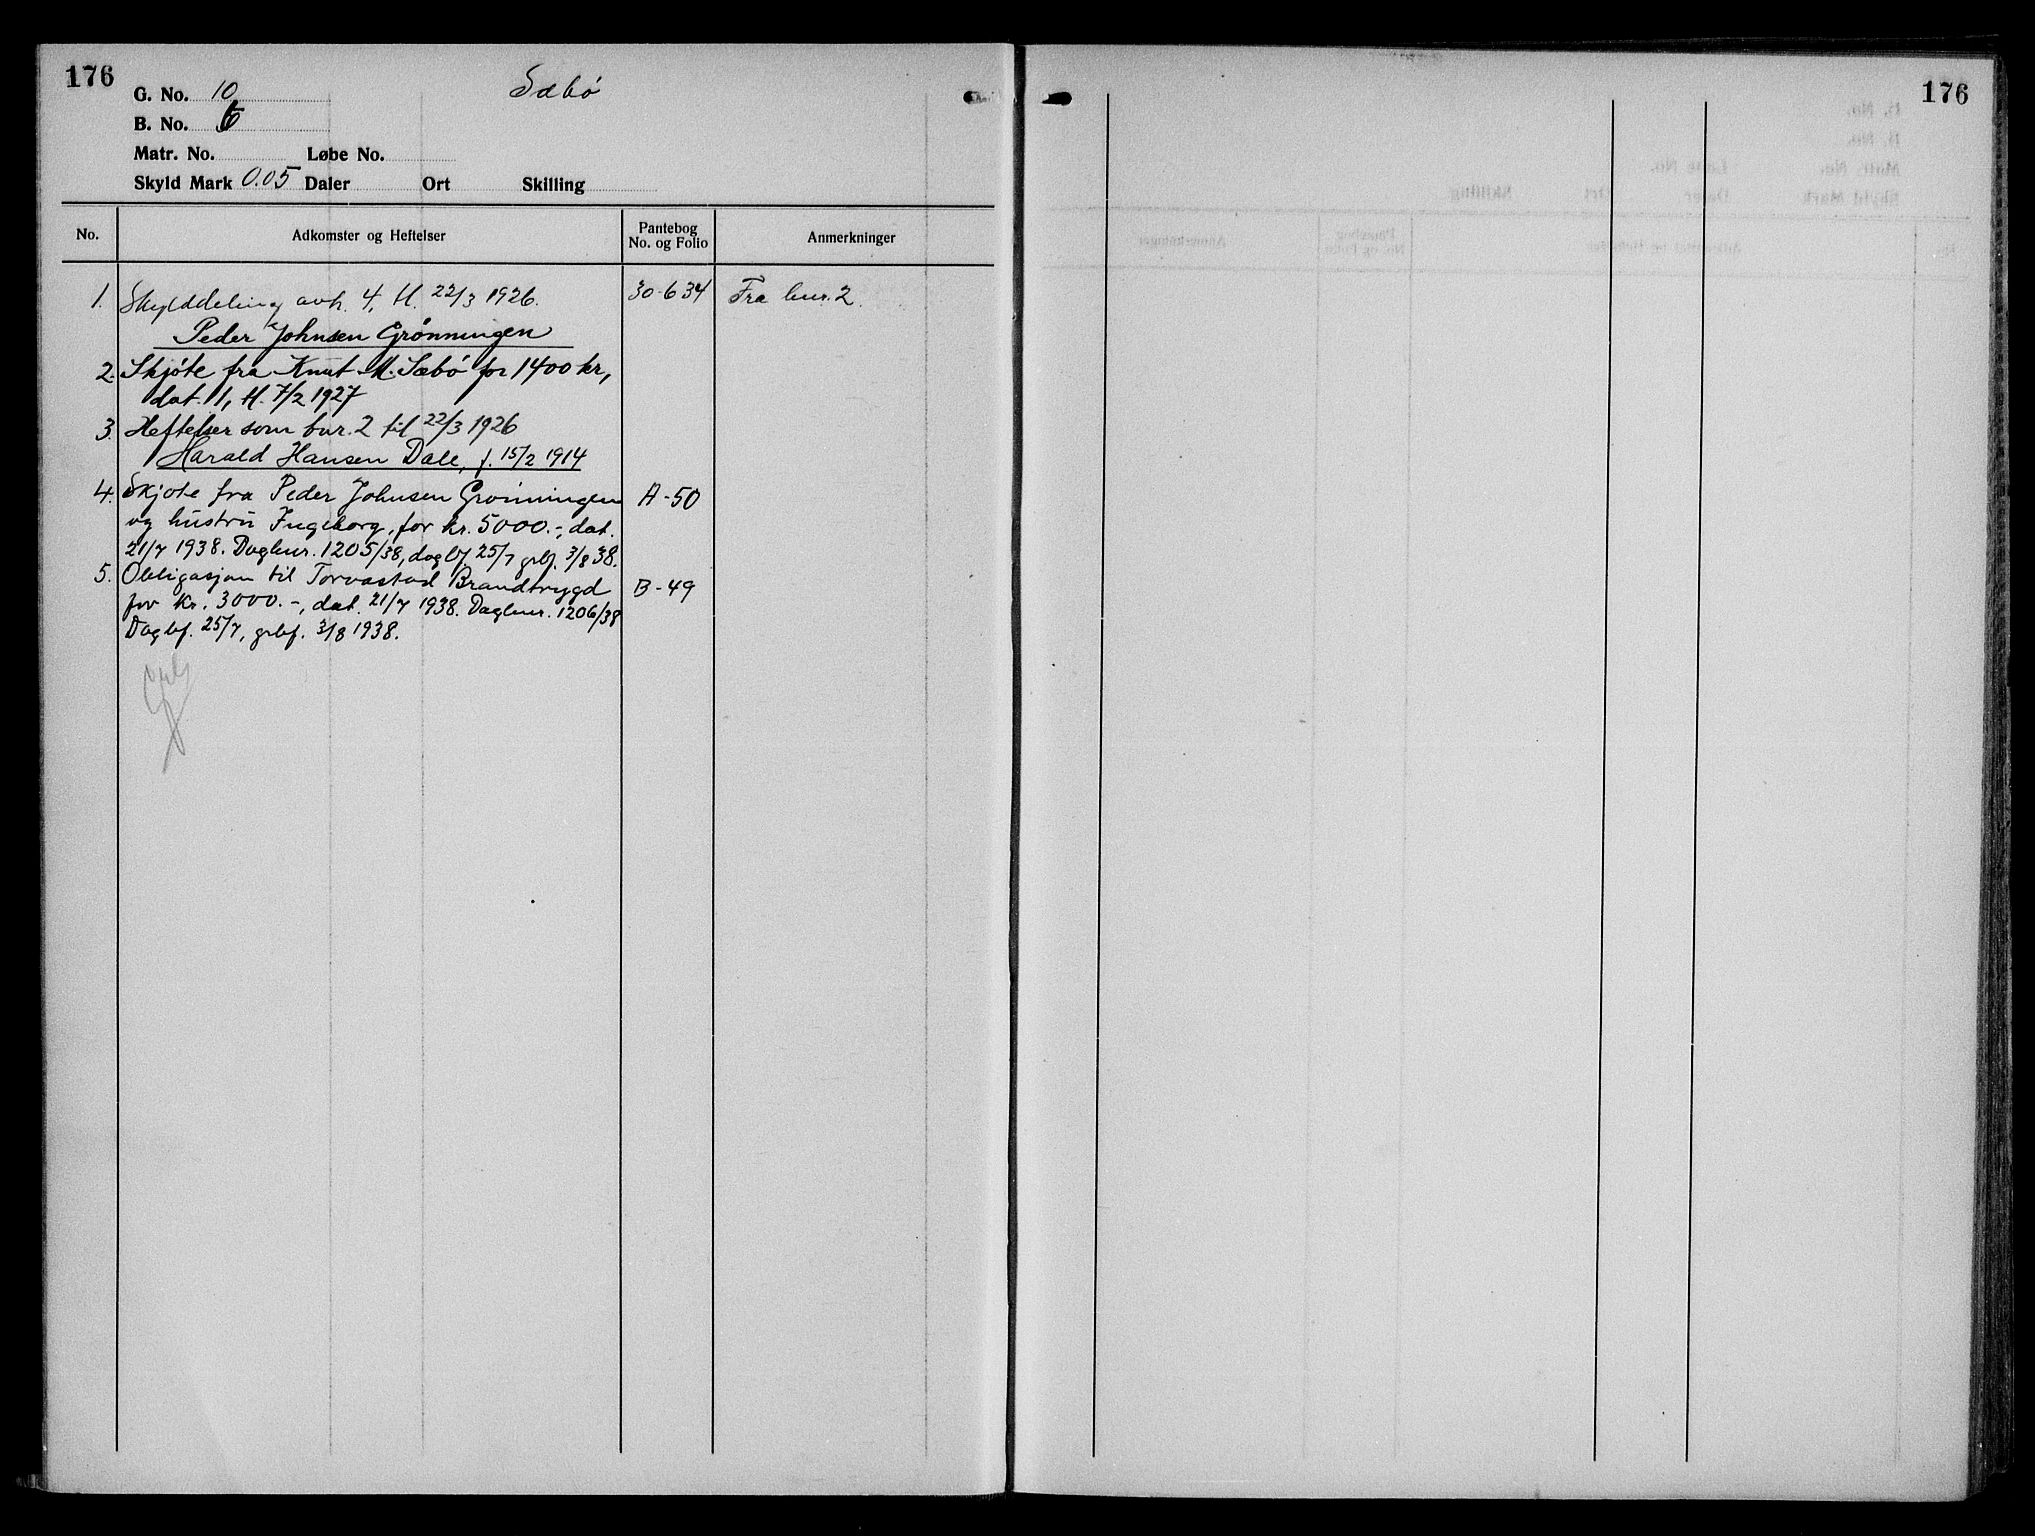 176
G. No. 10 Sæbö
B. No.
Matr. No. Løbe No.
Skyld Mark 0.05 Daler Ort Skilling
No. Adkomster og Heftelser Pantebog No. og Folio Anmerkninger
1. Skylddeling avh. 4, tl. 22/3 1926. 30-634 Fra bnr. 2.
Peder Johnsen Grönningen
2. Skjöte fra Knut M. Sæbö for 1400 kr,
dat. 1, tl. 7/2 1927
3. Heftelser som bnr. 2 til 22/3 1926
Harald Hansen Dale, f. 15/2 1914
4. Skjöte fra Peder Johnsen Grönningen A-50
og hustru Ingeborg, for kr. 5000.-, dat.
21/7 1938. Dagbnr. 1205/38, dagbf 25/7 grbf. 3/8 38.
5. Obligasjon til Torvastad Brandtrygd B-49
for kr. 3000.-, dat. 21/7 1938. Dagbnr. 1206/38
Dagbf. 25/7, grbf. 3/8 1938.
176